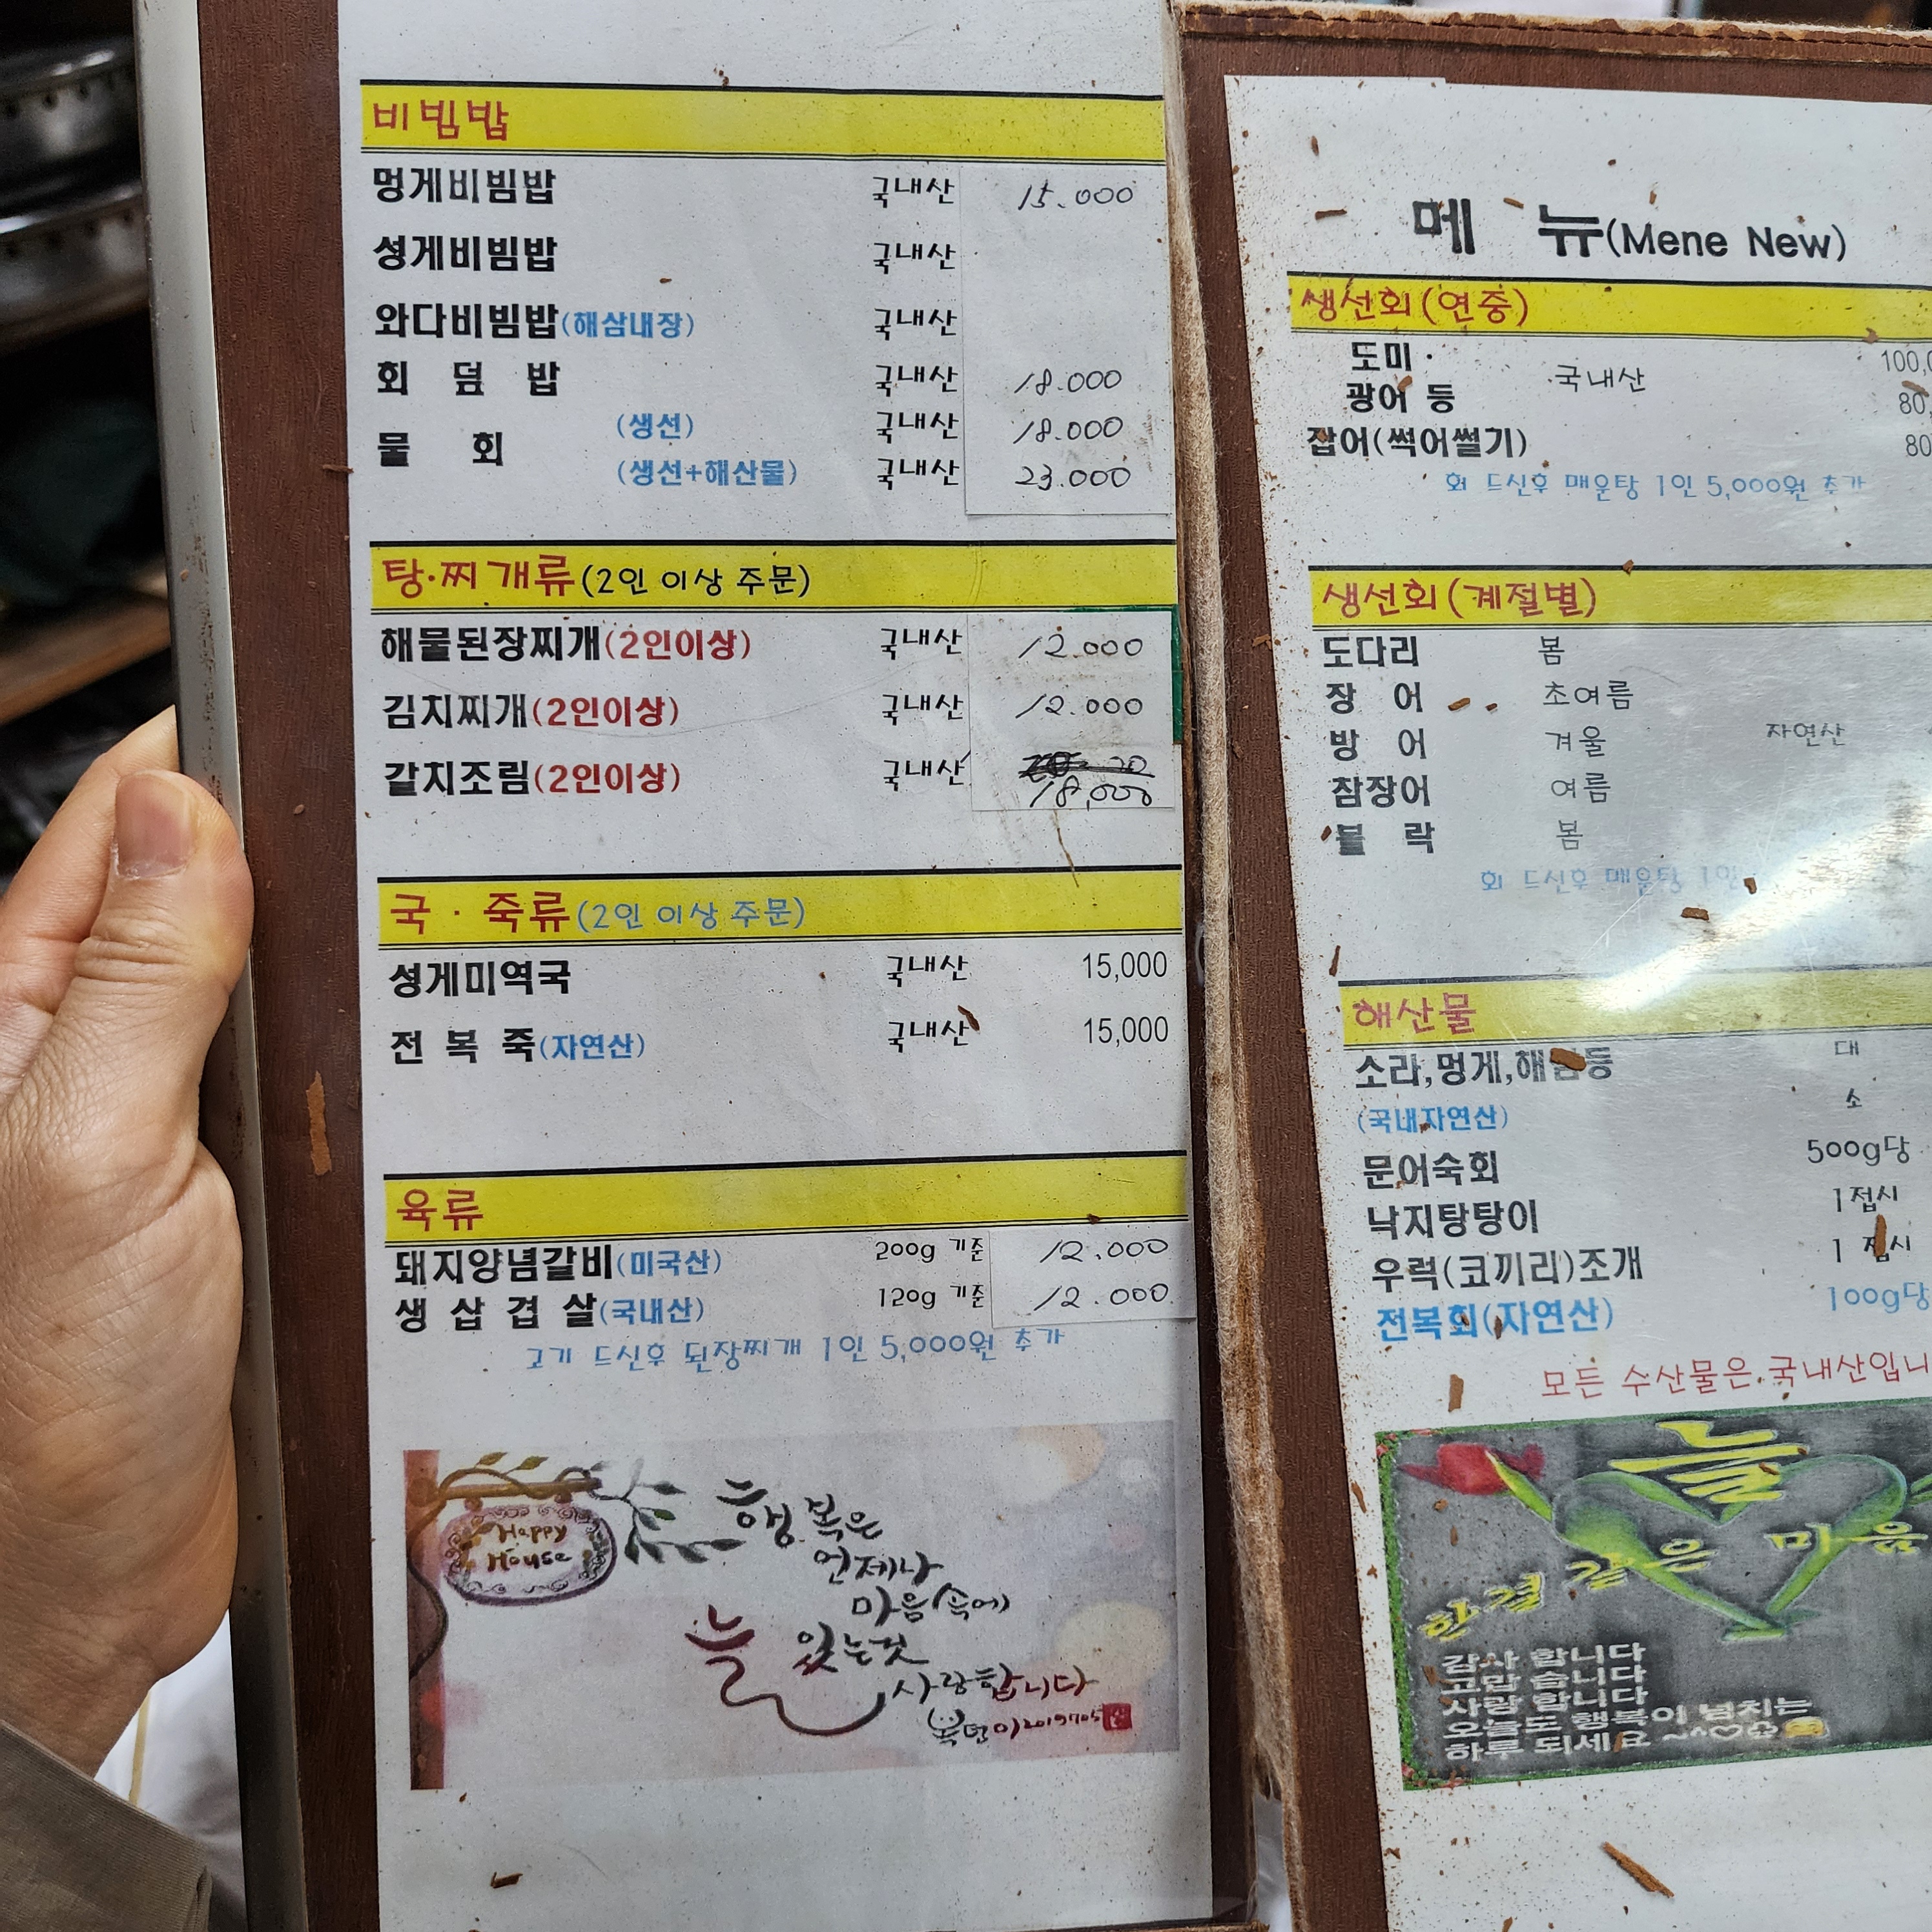 비빔밥
멍게비빔밥 국내산 15.000
성게비빔밥 국내산
와다비빔밥(해삼내장) 국내산
회 덮 밥 국내산 18.000
물 회 (생선) 국내산 18.000
(생선+해산물) 국내산 23.000
탕·찌개류(2인 이상 주문)
해물된장찌개(2인이상) 국내산 12.000
김치찌개(2인이상) 국내산 12.000
갈치조림(2인이상) 국내산 18,000
국 · 죽류(2인 이상 주문)
성게미역국 국내산 15,000
전 복 죽(자연산) 국내산 15,000
육류
돼지양념갈비(미국산) 200g 기준 12.000
생 삼 겹 살(국내산) 120g 기준 12.000
고기 드신후 된장찌개 1인 5,000원 추가
Happy
House
행복은
언제나
마음(속에)
늘 있는것
사랑합니다
복던이2019705
메 뉴(Mene New)
생선회(연중)
도미· 100,0
광어 등 국내산 80,
잡어(썩어썰기) 80
회 드신후 매운탕 1인 5,000원 추가
생선회(계절별)
도다리 봄
장 어 초여름
방 어 겨울 자연산
참장어 여름
볼 락 봄
회 드신후 매운탕 1인
해산물
소라,멍게,해삼등 대
(국내자연산) 소
문어숙회 500g당
낙지탕탕이 1접시
우럭(코끼리)조개 1 접시
전복회(자연산) 100g당
모든 수산물은 국내산입니
늘
한결같은 마음
감사 합니다
고맙 습니다
사랑 합니다
오늘도 행복이 넘치는
하루 되세요 ~^♡